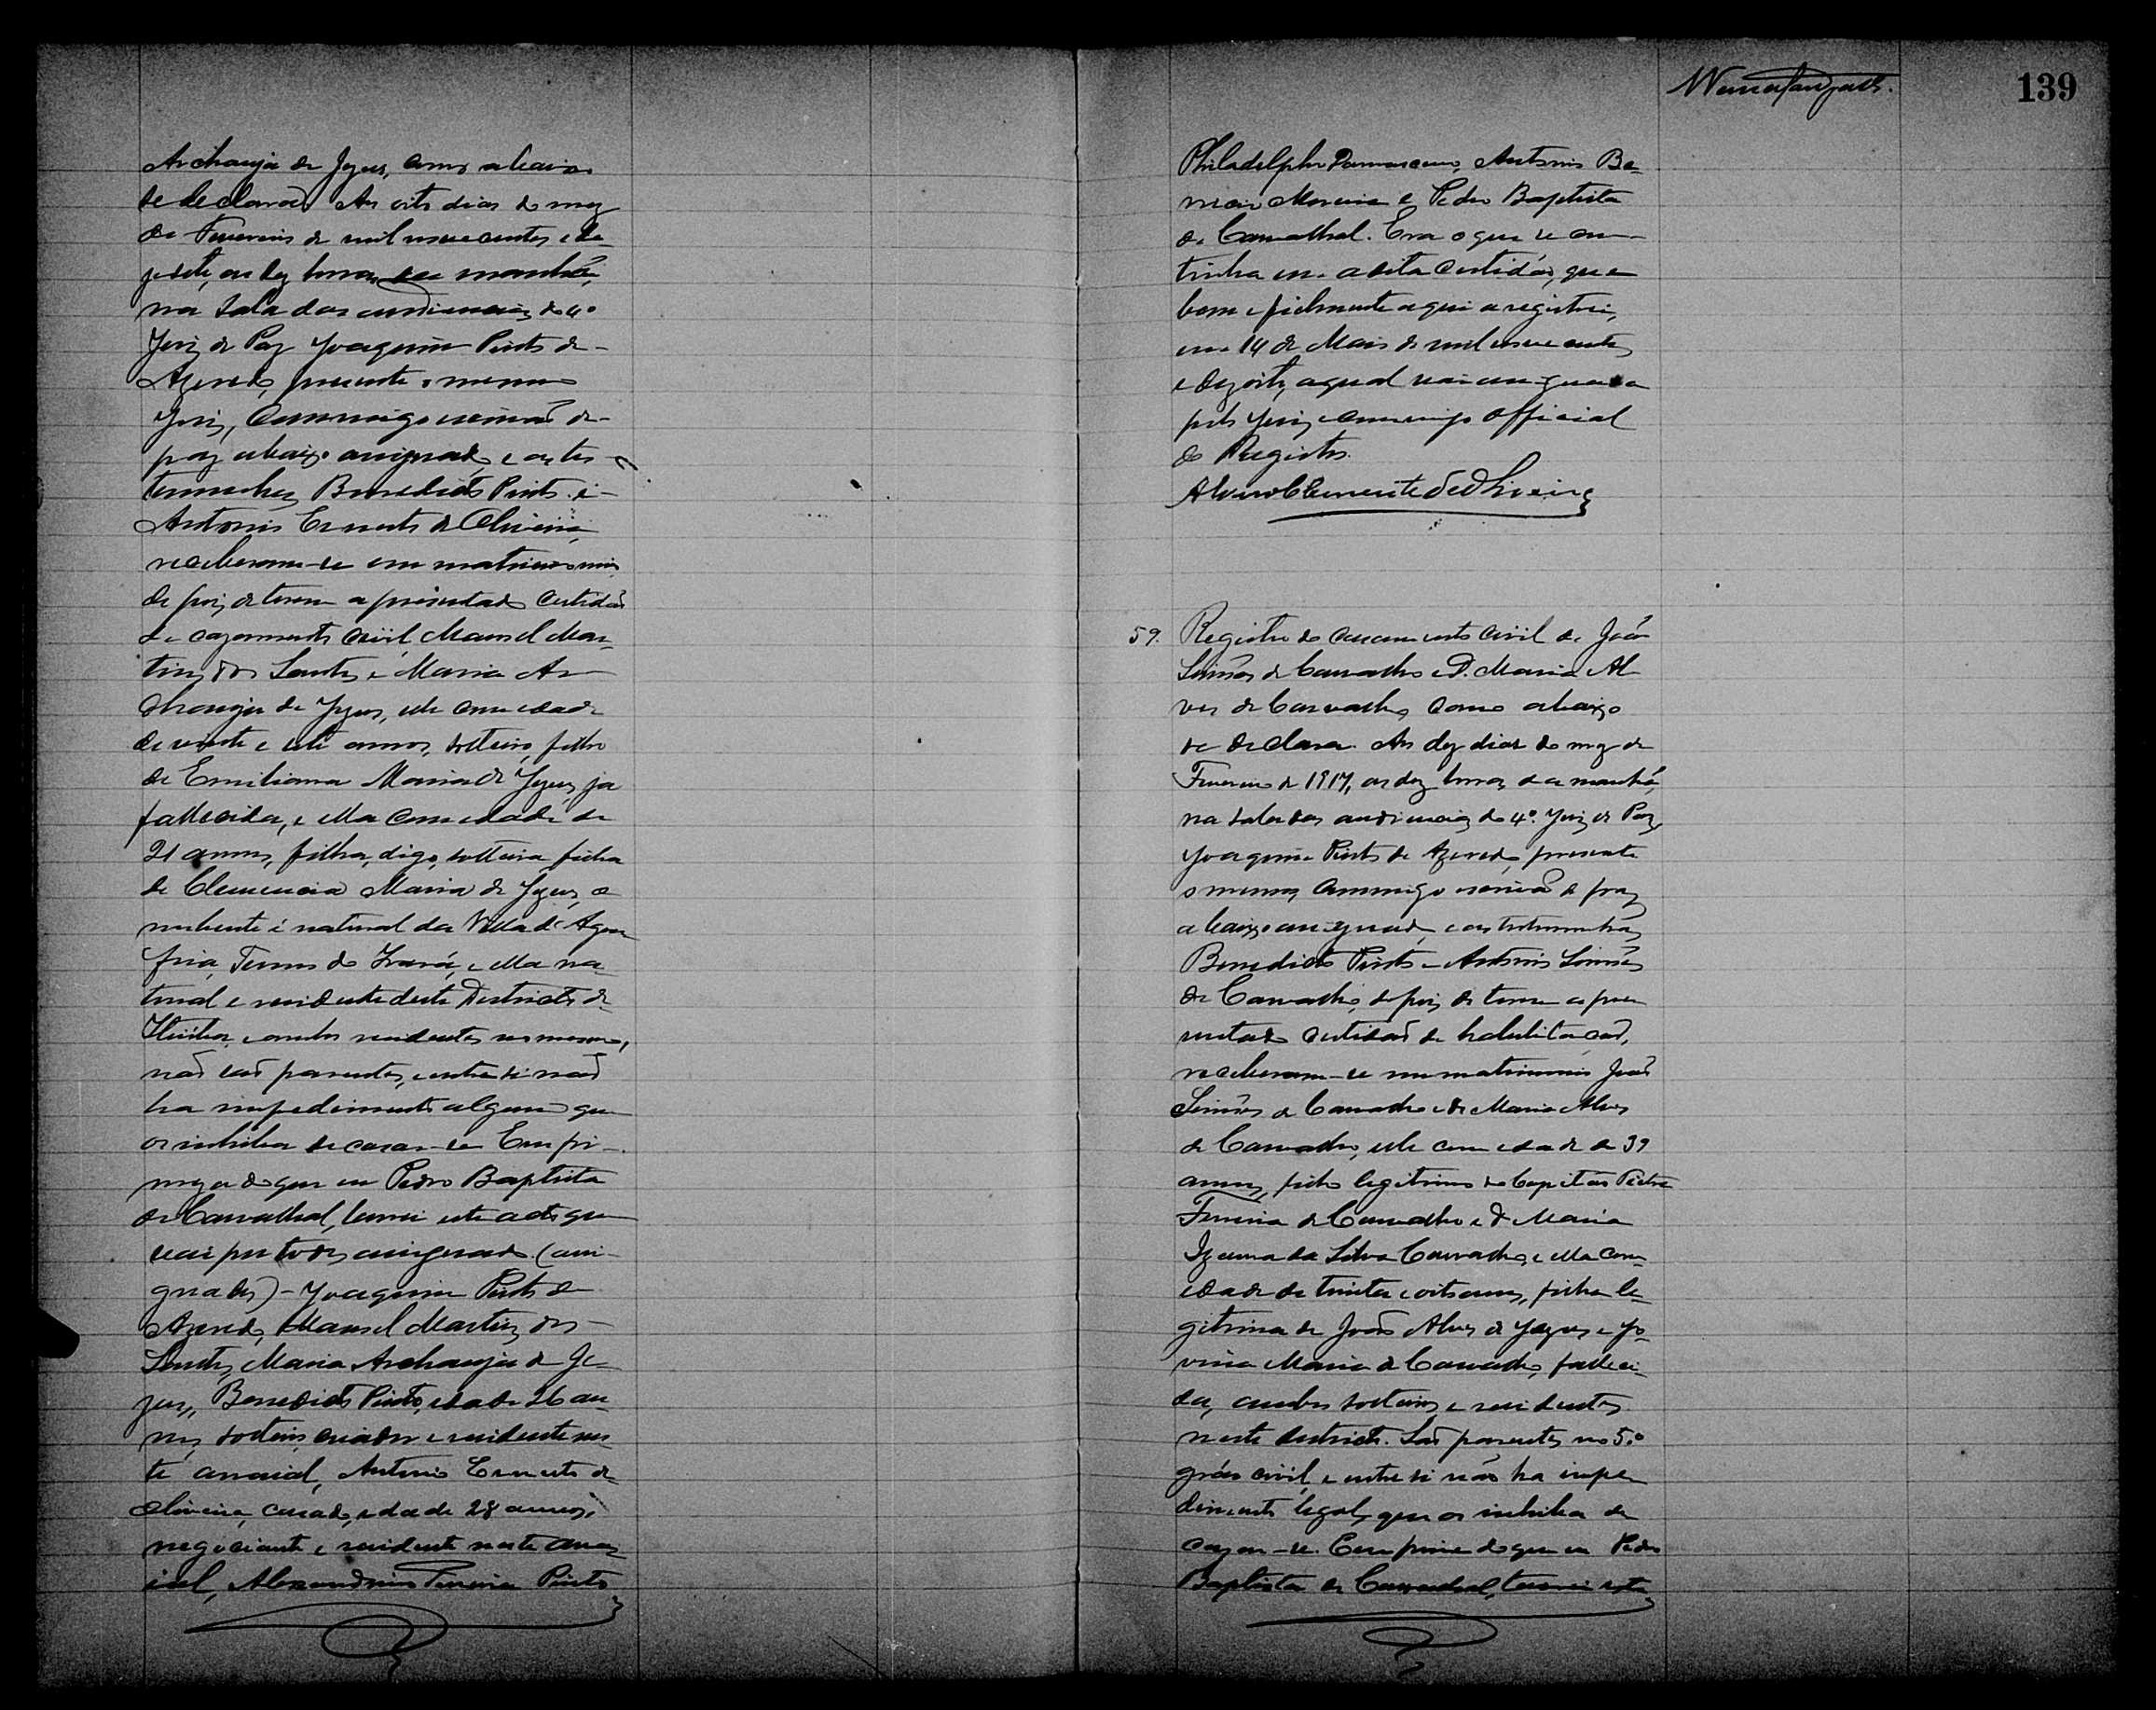 Archanja de Jezus, como abaixo
se declara. Aos oito dias do mez
de Fevereiro de mil novecentos e de-
zesete, as dez horas da manhã,
na sala das audiencias do 4º
Juiz de Paz Joaquim Pinto de
Azevedo, presente o mesmo
Juiz, commigo escrivão de
paz abaixo assignado, e as tes-
temunhas Benedicto Pinto e
Antonio Ernesto de Oliveira,
receberam-se em matrimonio
depois de terem apresentado certidão
de cazamento civil, Manoel Mar-
tins dos Santos e Maria Ar-
chanja de Jezus, elle com edade
de vinte e sete annos, solteiro, filho
de Emiliana Maria de Jezus, ja
fallecida, e ella com edade de
21 annos, filha, digo, solteira filha
de Clemencia Maria de Jezus, o
nubente é natural da Villa de Agua
fria, Termo de Irará, e ella na-
tural e residente deste Districto de
e ambos residentes no mesmo,
não são parentes, e entre si não
ha impedimento algum que
os inhiba de casar-se. Em fir-
meza do que eu Pedro Baptista
de Carvalhal, lavrei este acto que
vai por todos assignado. (assi-
gnados) - Joaquim Pinto de
Azevedo, Manoel Martins dos
Santos, Maria Archanja de Je-
zus, Benedicto Pinto, edade 26 an-
nos, solteiro, criador e residente nes-
te arraial, Antonio Ernesto de
Oliveira, casado, edade 28 annos,
negociante e residente neste arra-
ial, Alexandrino Ferreira Pinto
139
Philadelpho Damasceno, Antonio
Moreira e Pedro Baptista
de Carvalhal. Era o que se con-
tinha em a dita certidão, que
bem e fielmente aqui a registrei,
em 14 de Maio de mil novecentos
e dezoito, a qual vai assignada
pelo Juiz e commigo Official
do Registro.
Alvaro Clemente de Oliveira
59. Registro do casamento civil de João
Simões de Carvalho e D. Maria Al-
ves de Carvalho, como abaixo
se declara. Aos dez dias do mez de
Fevereiro de 1917, as dez horas da manhã,
na sala das audiencias do 4º Juiz de Paz,
Joaquim Pinto de Azevedo, presente
o mesmo, commigo escrivão de paz
abaixo assignado, e as testemunhas
Benedicto Pinto e Antonio Simões
de Carvalho, depois de terem apre-
sentado certidão de habilitação,
receberam-se em matrimonio João
Simões de Carvalho e D. Maria Alves
de Carvalho, elle com edade de 39
annos, filho legitimo do Capitão Pedro
Ferreira de Carvalho e D. Maria
da Silva Carvalho, e ella com
edade de trinta e oito annos, filha le-
gitima de João Alves de Jezus e Jo-
vina Maria de Carvalho, falleci-
da, ambos solteiros e residentes
neste districto. São parentes no 5º
gráo civil, e entre si não ha impe-
dimento legal, que os inhiba de
cazar-se. Em firme do que eu Pedro
Baptista de Carvalhal, lavrei este